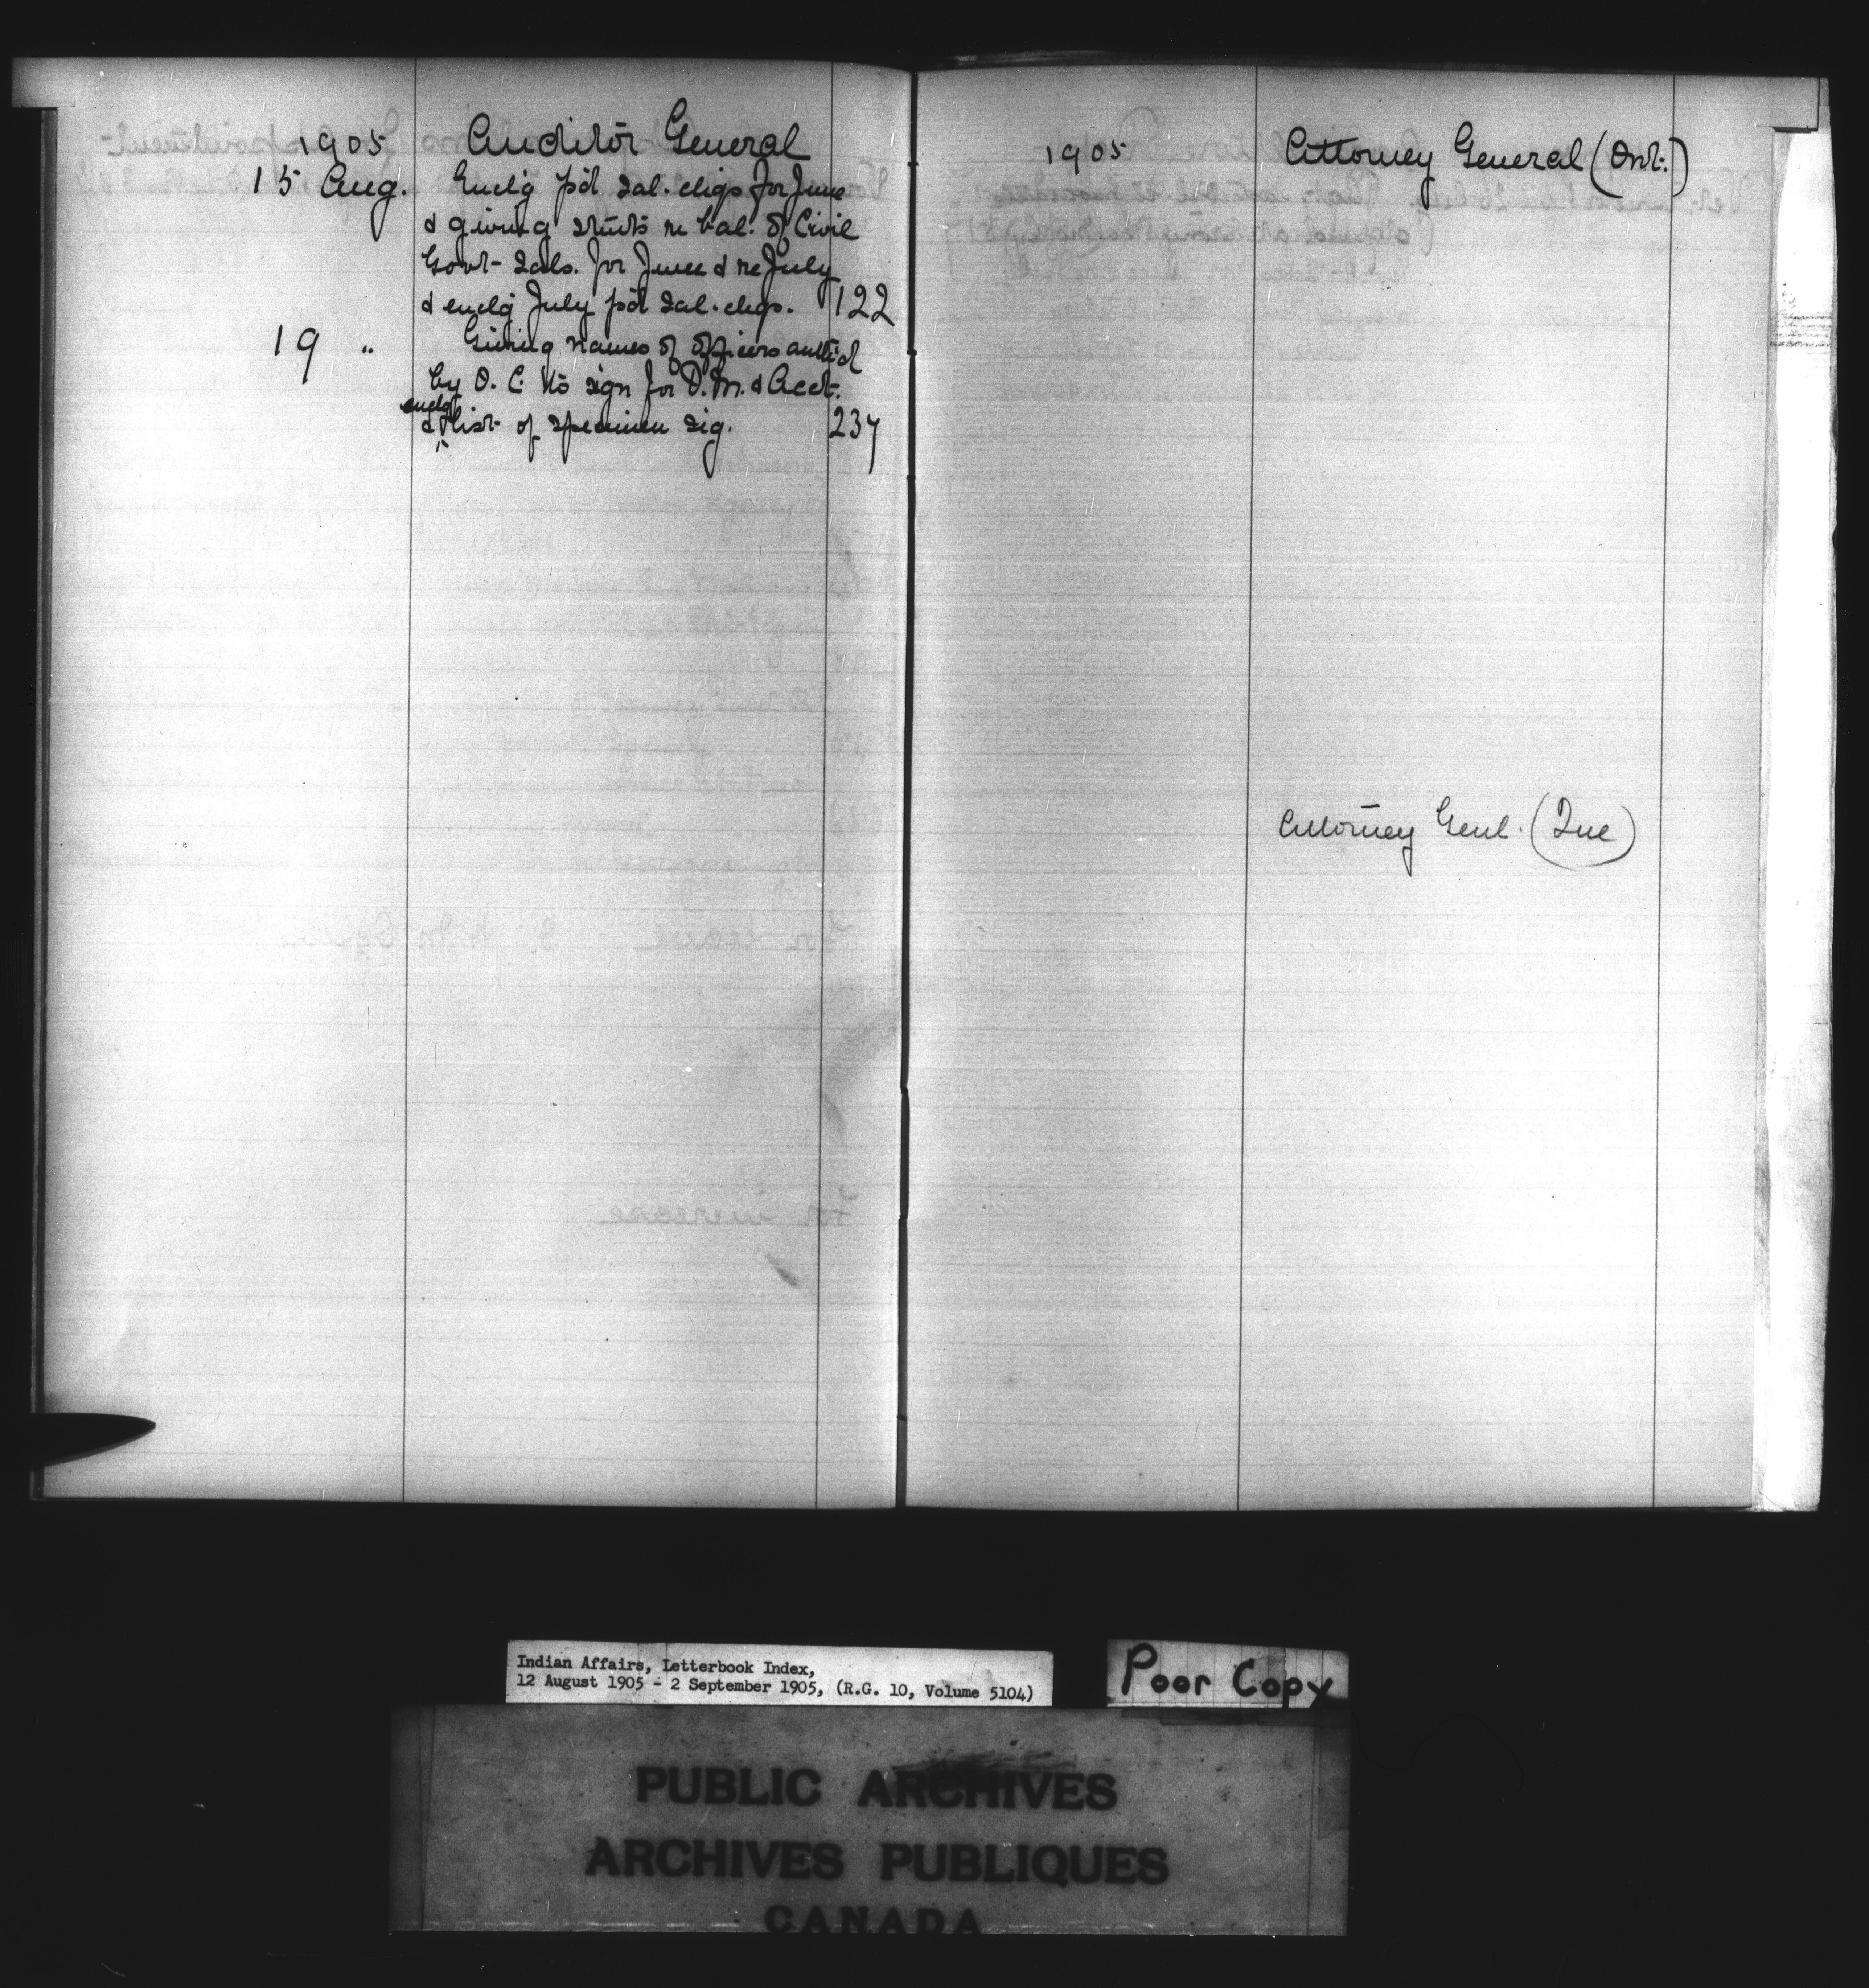 1905 Auditor General
15 Aug. Encl'g p'd sal. chqs for June
& giving stmts re bal. of Civil
Govt- Sals. for June & re July
& encl'g July p'd sal. chqs. 122
19 " Giving names of officers auth'd
by O. C. to sign for D.M. & Acct.
enclg
& list of specimen sig. 237
1905 Attorney General (Ont.)
Attorney Genl. (Que)
Indian Affairs, Letterbook Index,
12 August 1905 - 2 September 1905, (R.G. 10, Volume 5104)
Poor Copy
PUBLIC ARCHIVES
ARCHIVES PUBLIQUES
CANADA